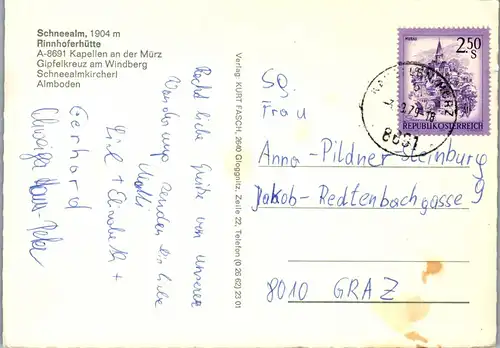 Schneealm, 1904 m
Rinnhoferhütte
A-8691 Kapellen an der Mürz
Gipfelkreuz am Windberg
Schneealmkircherl
Almboden
Verlag: KURT FASCH, 2640 Gloggnitz, Zeile 22, Telefon (0 26 62) 23 01
Recht liebe Grüße von unserer
Wanderung senden Dir liebe
Lisl + Elisabeth +
Gerhard
MURAU
2.50
S
REPUBLIK ÖSTERREICH
8691
Frau
Anna-Pildner-Steinburg
Jakob-Redtenbachgasse 9
8010 GRAZ